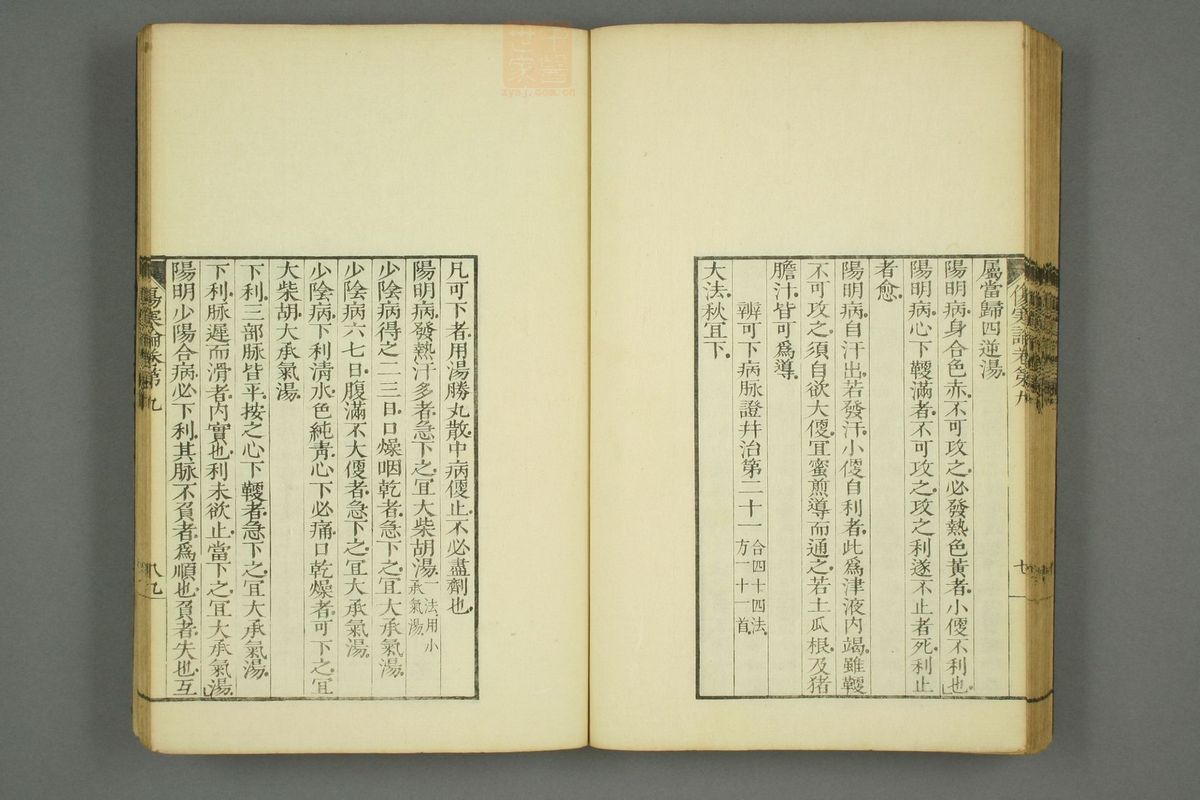 傷寒論卷第九
七
屬當歸四逆湯
陽明病身合色赤不可攻之必發熱色黃者小便不利也
陽明病心下鞕滿者不可攻之攻之利遂不止者死利止
者愈
陽明病自汗出若發汗小便自利者此爲津液內竭雖鞕
不可攻之須自欲大便冝蜜煎導而通之若土瓜根及猪
膽汁皆可爲導
辨可下病脉證并治第二十一 合四十四法 方一十一首
大法秋冝下
凡可下者用湯勝丸散中病便止不必盡劑也
陽明病發熱汗多者急下之冝大柴胡湯 一法用小 承氣湯
少陰病得之二三日口燥咽乾者急下之冝大承氣湯
少陰病六七日腹滿不大便者急下之冝大承氣湯
少陰病下利清水色純青心下必痛口乾燥者可下之冝
大柴胡大承氣湯
下利三部脉皆平按之心下鞕者急下之冝大承氣湯
下利脉遲而滑者內實也利未欲止當下之冝大承氣湯
陽明少陽合病必下利其脉不負者爲順也負者失也互
傷寒論卷第九
zysj.com.cn